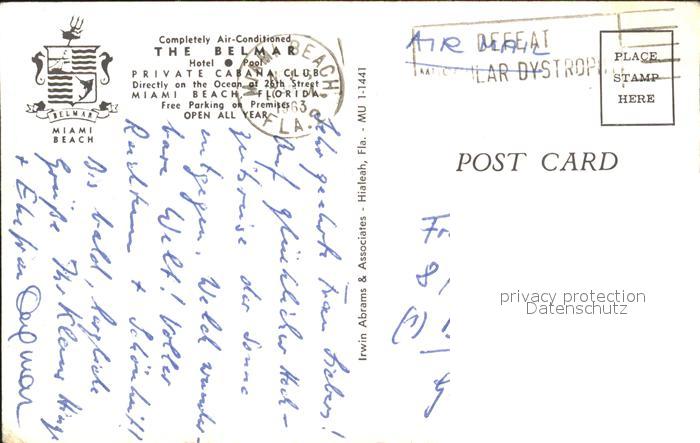 Completely Air-Conditioned
THE BELMAR
Hotel • Pool
PRIVATE CABANA CLUB
Directly on the Ocean at 26th Street
MIAMI BEACH, FLORIDA
Free Parking on Premises
OPEN ALL YEAR
BELMAR
MIAMI
BEACH
BEACH,
1963
FLA.
AIR MAIL
DEFEAT
PLACE
STAMP
HERE
POST CARD
Irwin Abrams & Associates - Hialeah, Fla. - MU 1-1441
Sehr geehrte Frau
Auf glücklicher Hoch-
zeitsreise der Sonne
entgegen. Welch wunder-
bare Welt! Voller
Reichtum + Schönheit!
Bis bald, herzliche
Grüße Ihr Klaus
+ Ehefrau Dagmar
privacy protection
Datenschutz